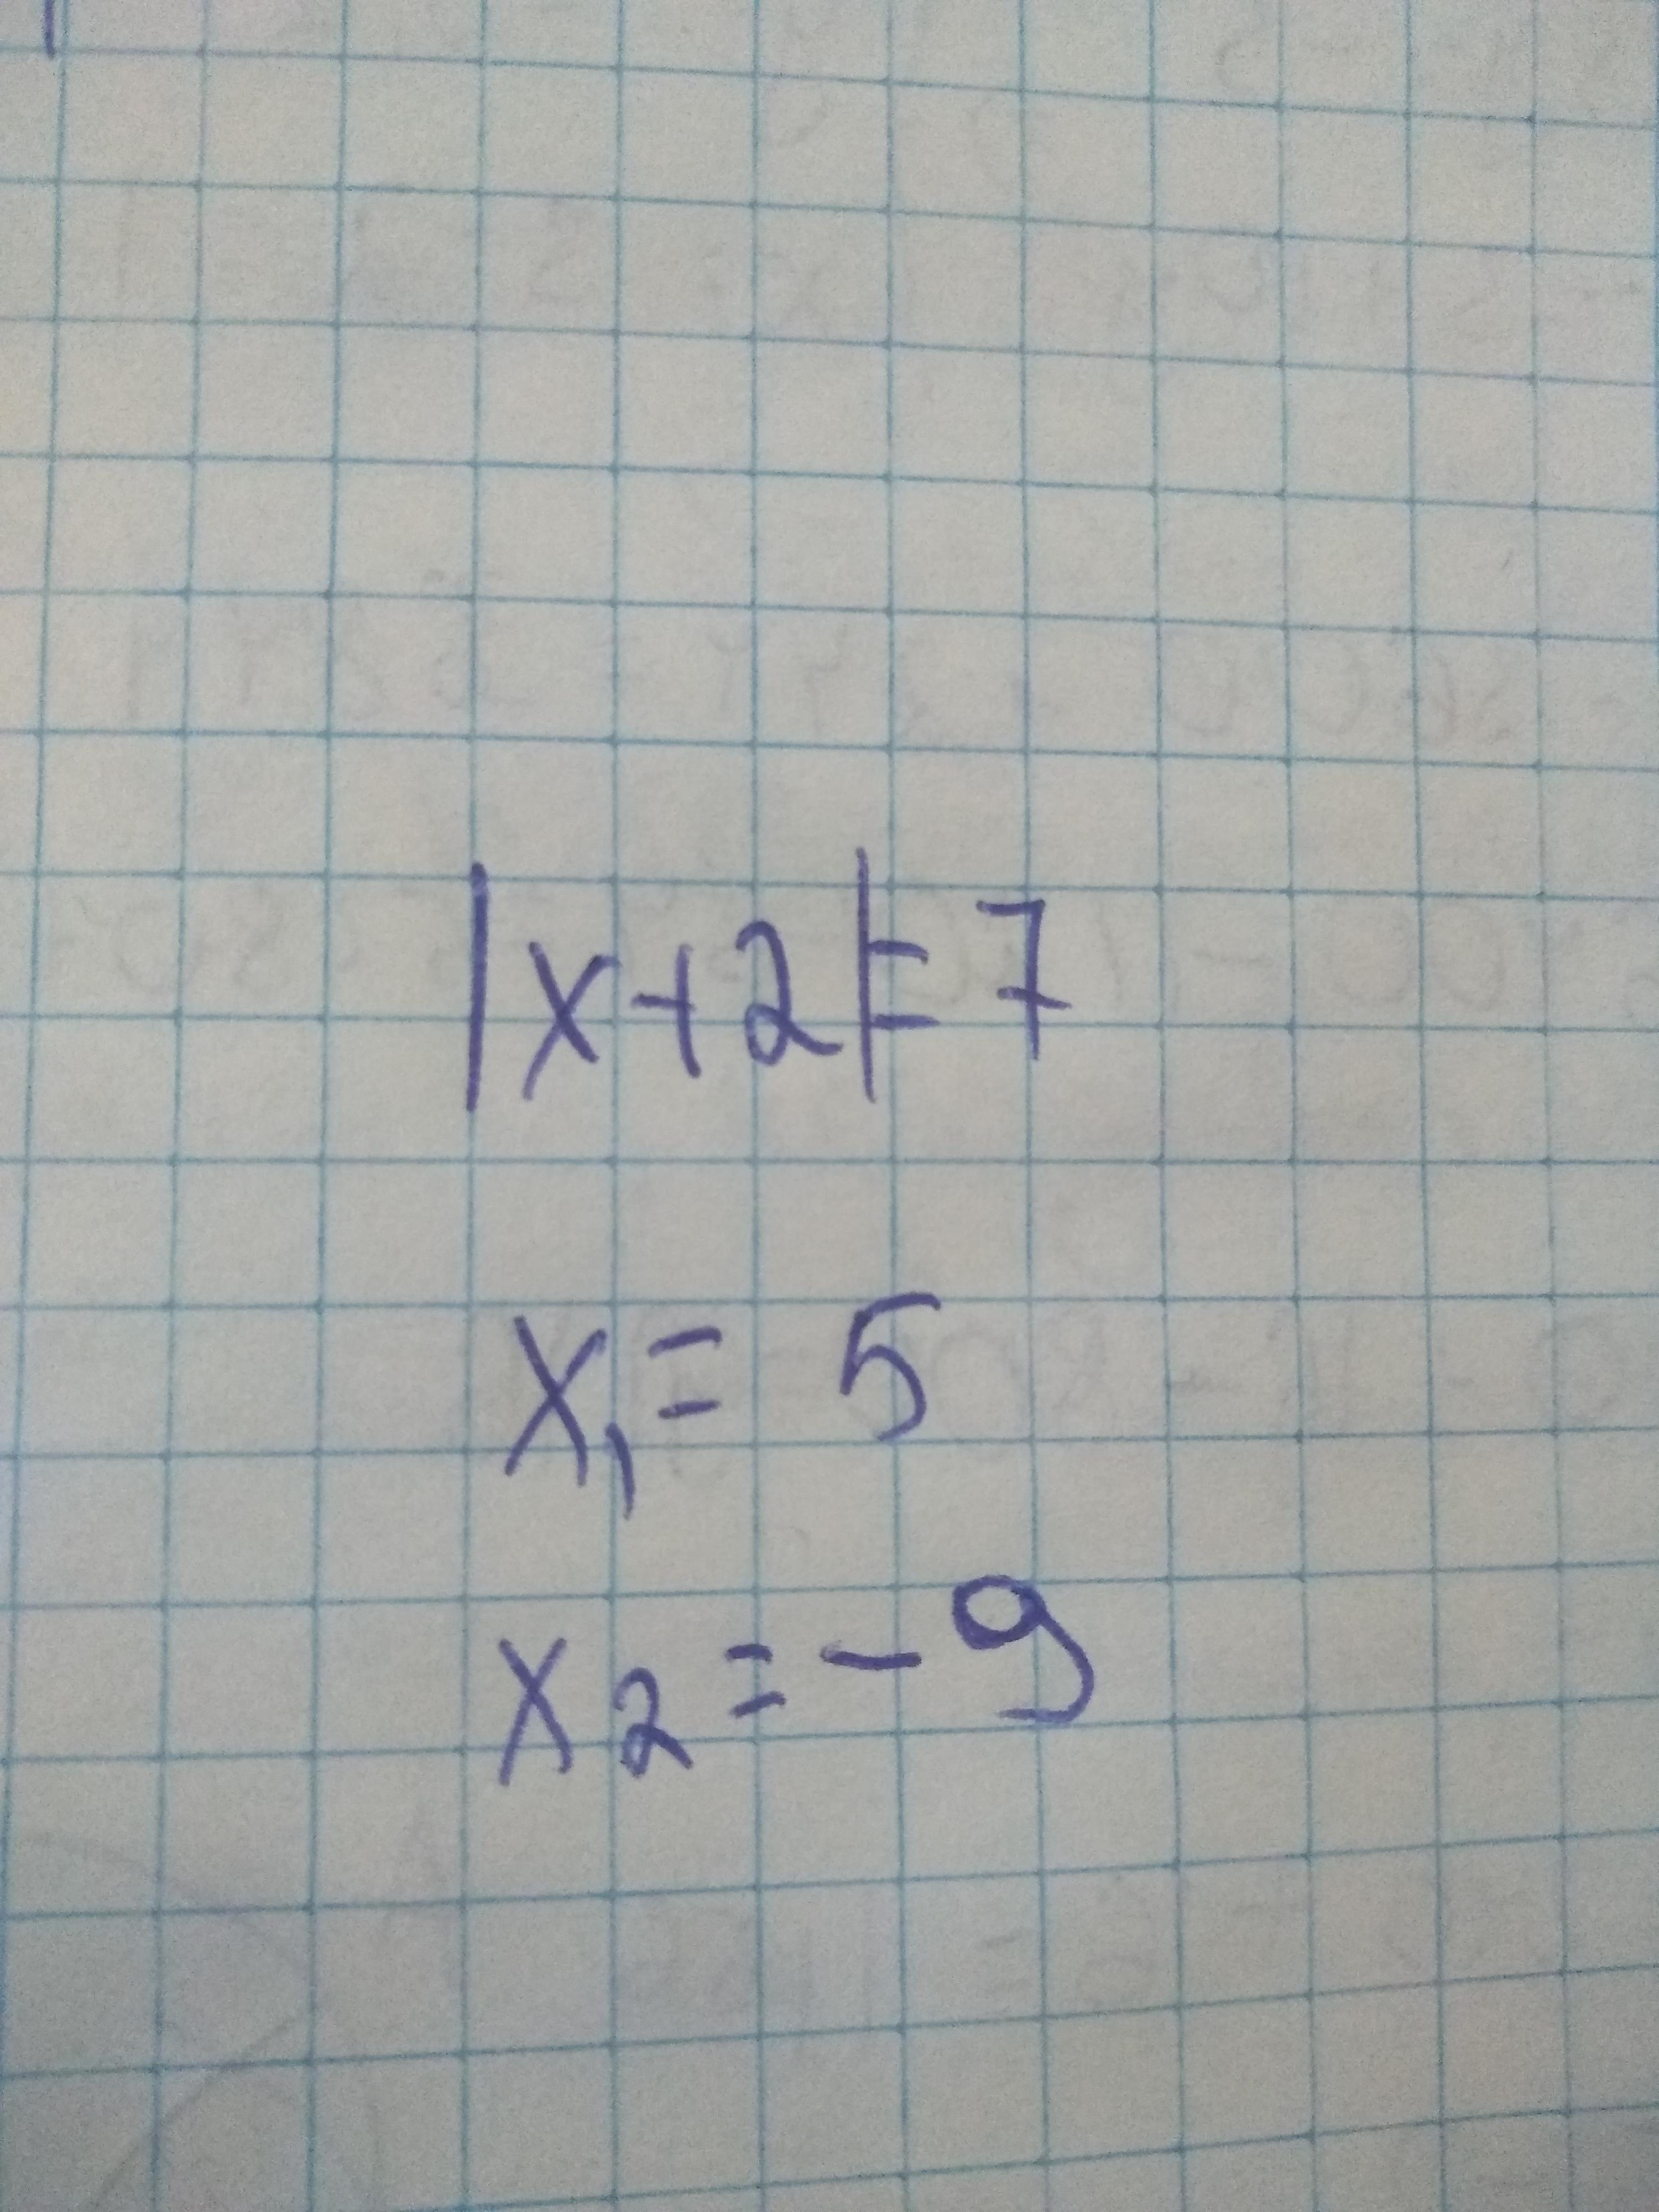 |x+2|=7
x₁= 5
x₂=-9